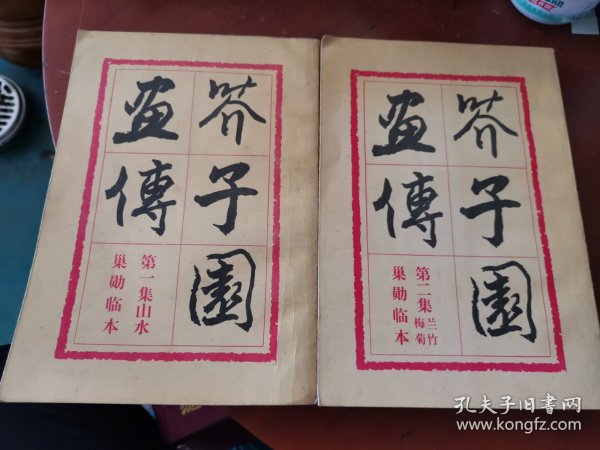 芥子園
畫傳
第一集山水
巢勋临本
芥子園
畫傳
第二集兰竹梅菊
巢勋临本
孔夫子旧书网
www.kongfz.com